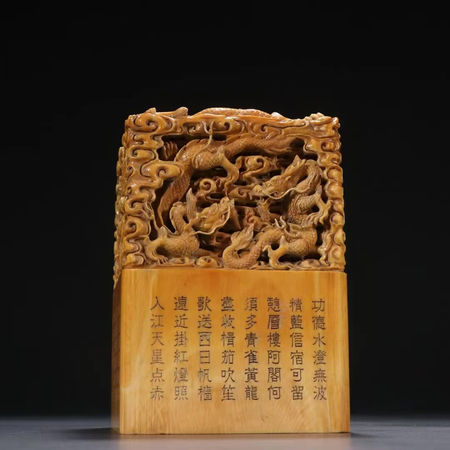 功德水澄無波
精藍信宿可留
憩層樓阿閣何
須多青雀黃龍
盡收楫笳吹笙
歌送西日帆檣
遠近掛紅燈照
入江天星点赤